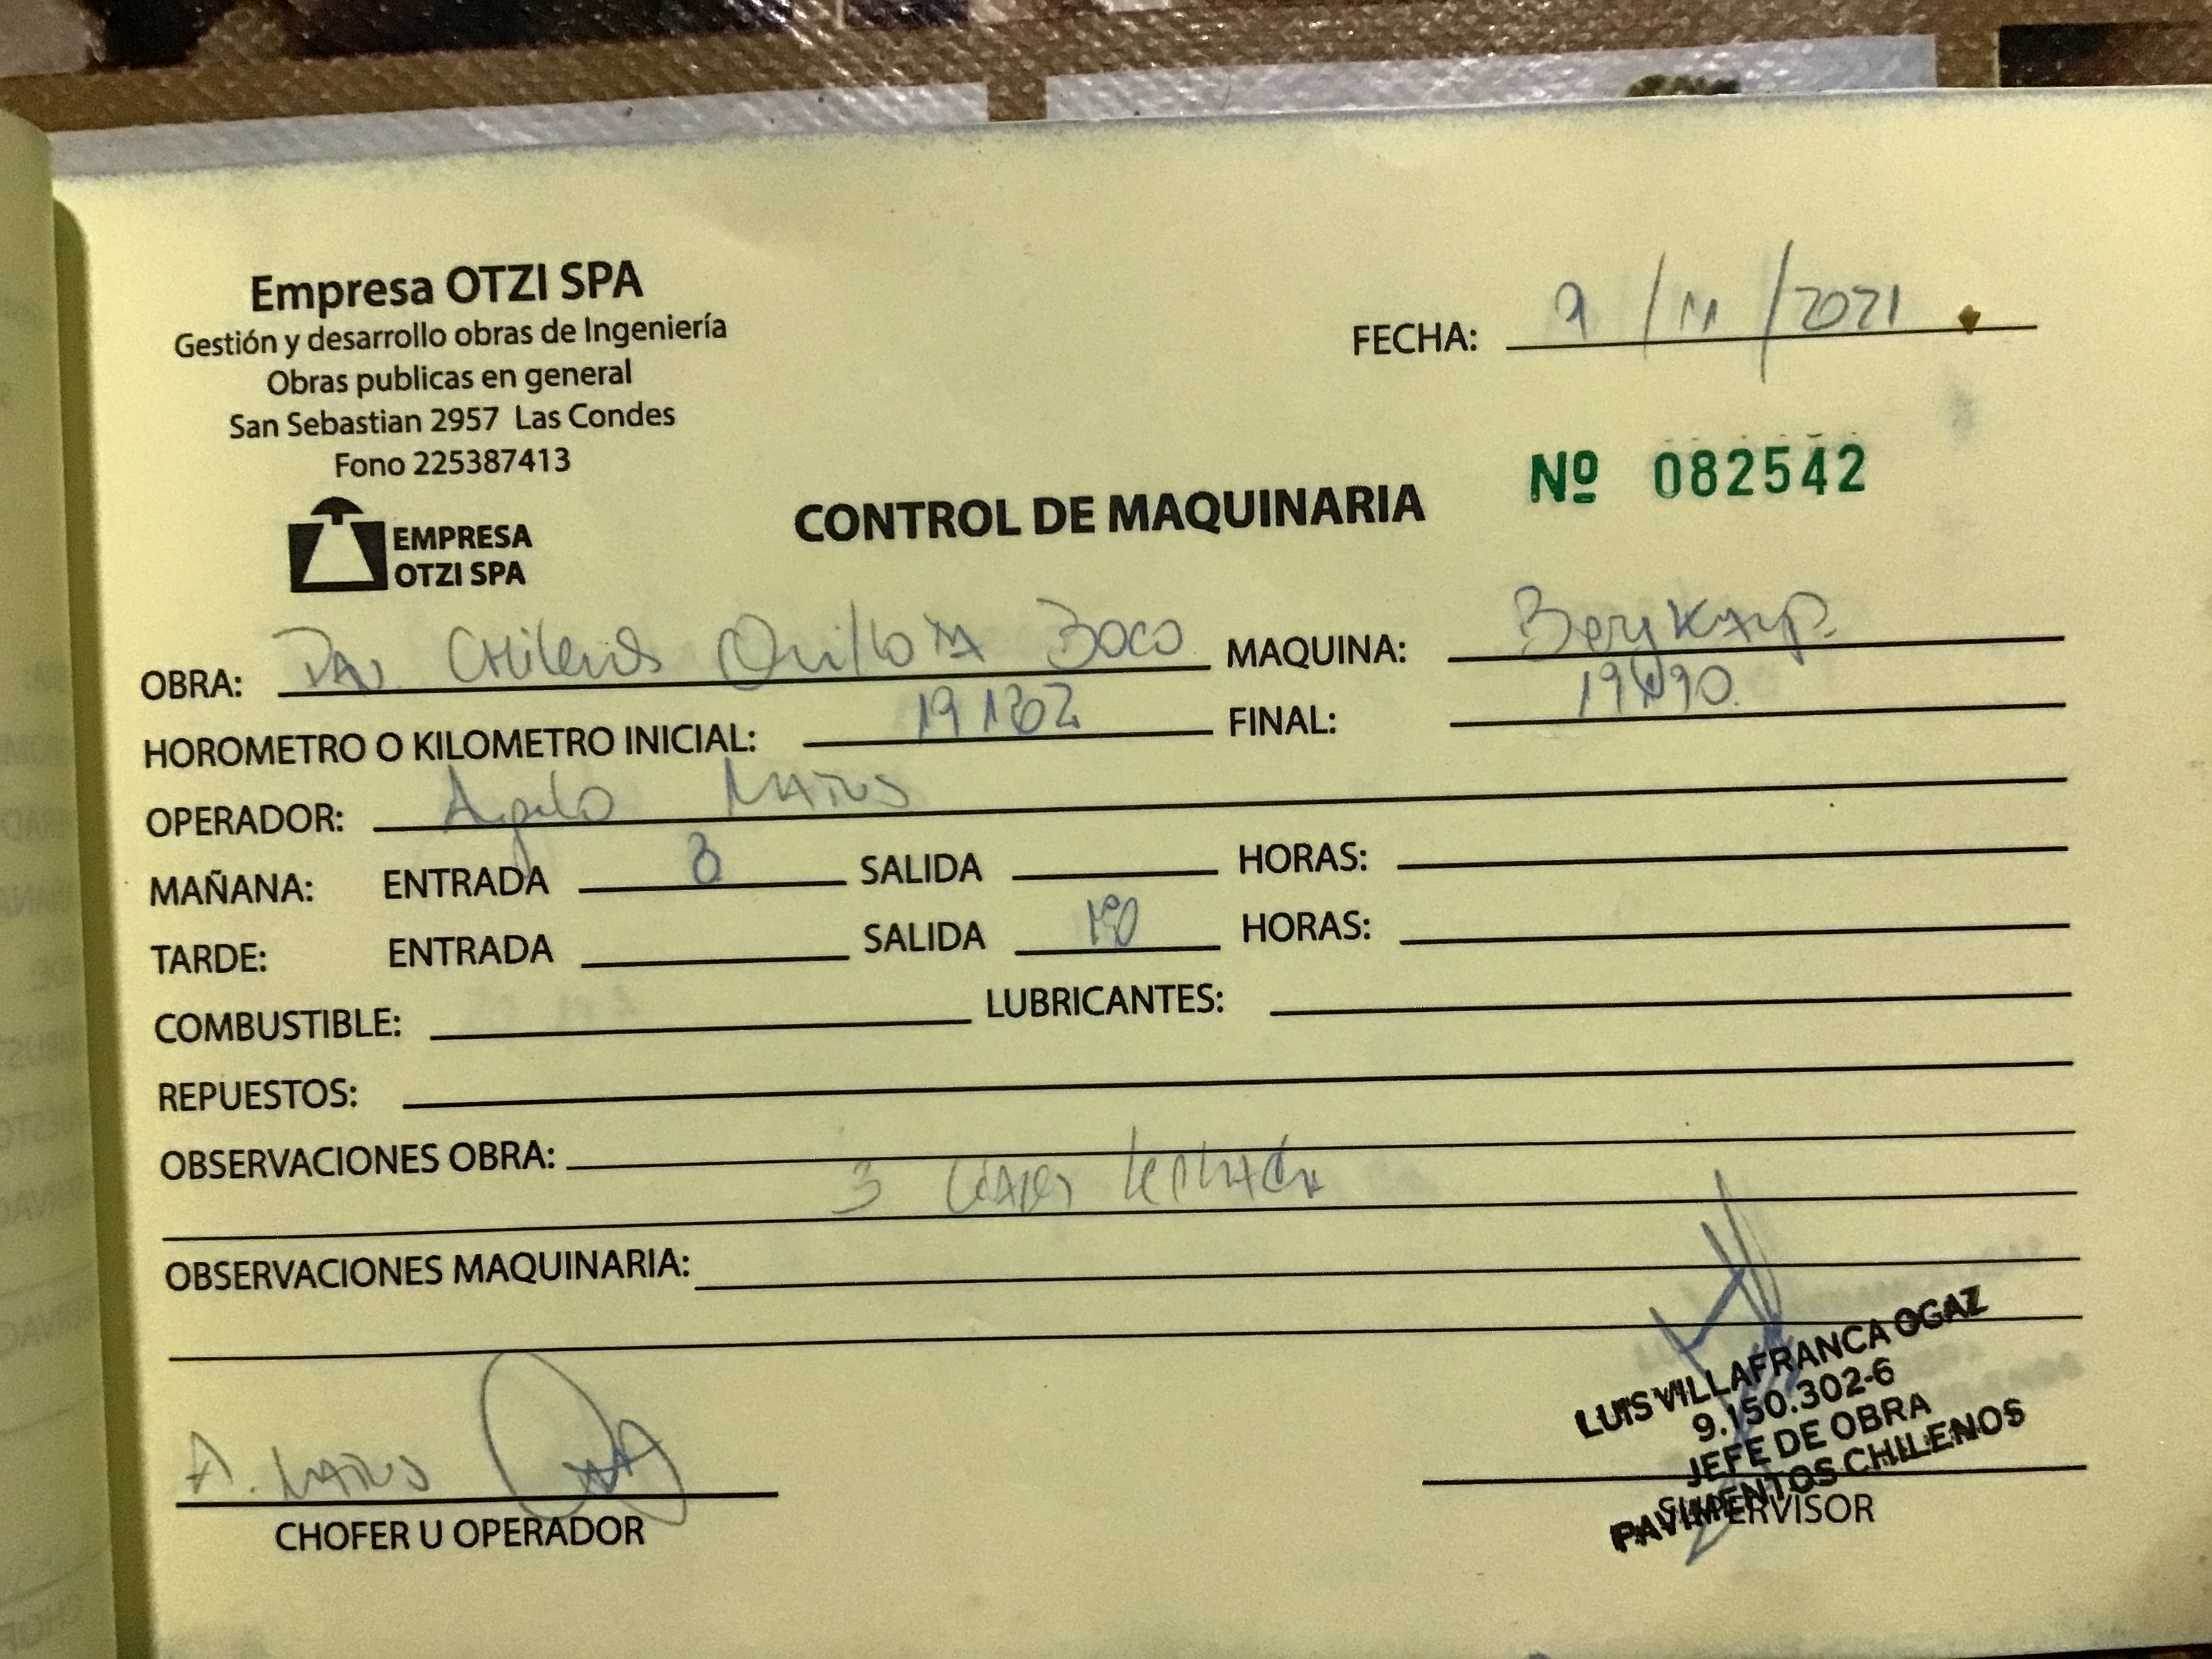 Empresa OTZI SPA
Gestión y desarrollo obras de Ingeniería
Obras publicas en general
San Sebastian 2957 Las Condes
Fono 225387413
FECHA: 9 / 11 / 2021
EMPRESA
OTZI SPA
CONTROL DE MAQUINARIA Nº 082542
OBRA: Pav Chilenos Quillota Boco MAQUINA:
HOROMETRO O KILOMETRO INICIAL: FINAL:
OPERADOR: Matus
MAÑANA: ENTRADA 8 SALIDA HORAS:
TARDE: ENTRADA SALIDA HORAS:
COMBUSTIBLE: LUBRICANTES:
REPUESTOS:
OBSERVACIONES OBRA:
3
OBSERVACIONES MAQUINARIA:
A. Matus
CHOFER U OPERADOR
LUIS VILLAFRANCA OGAZ
9.150.302-6
JEFE DE OBRA
PAVIMENTOS CHILENOS
SUPERVISOR